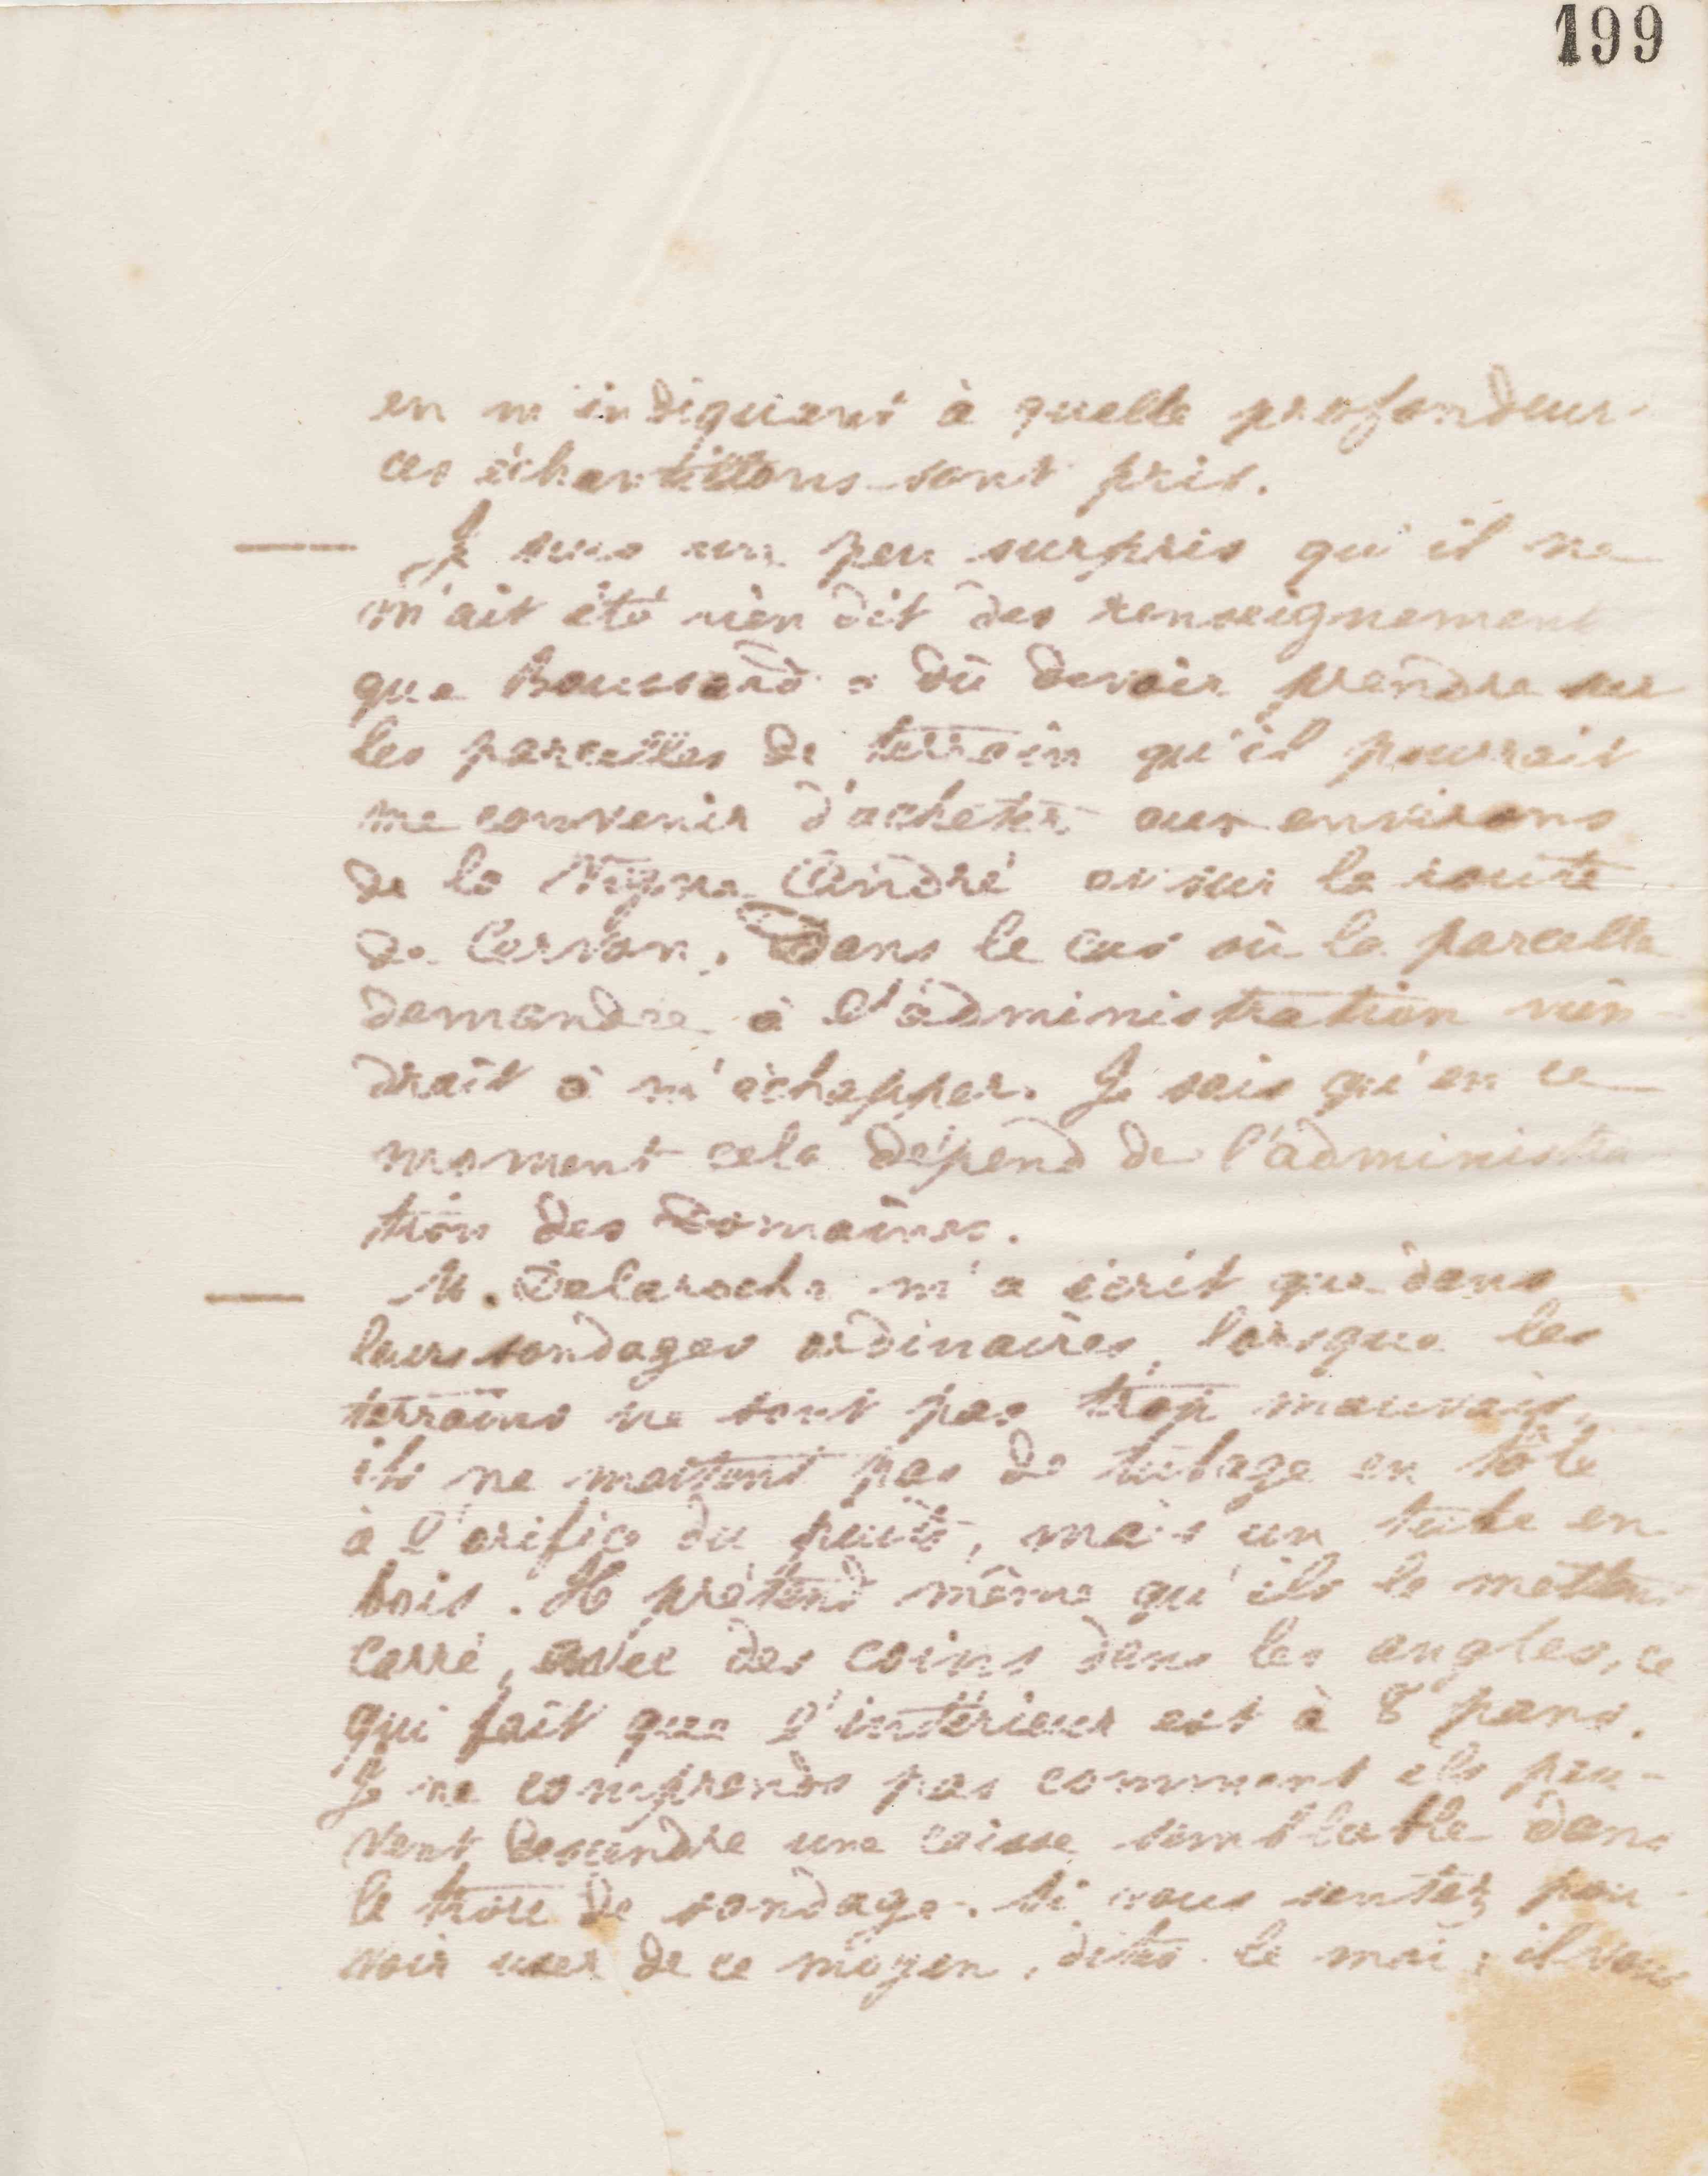 199
en m'indiquant à quelle profondeur
ces échantillons sont pris.
Je suis un peu surpris qu'il ne
m'ait été rien dit des renseignement
que Boussard a dû devoir prendre sur
les parcelles de terrain qu'il pourrait
me convenir d'acheter aux environs
de la Vigne André ou sur la route
de Corvon. Dans le cas où la parcelle
demandée à l'administration vien-
drait à m'échapper. Je sais qu'en ce
moment cela dépend de l'administra
tion des Domaines.
M. Delaroche m'a écrit que dans
leurs sondages ordinaires, lorsque les
terrains ne sont pas trop mauvais,
ils ne mettent pas de tubage en tôle
à l'orifice du puits, mais un tube en
bois. Il prétend même qu'ils le mettent
carré, avec des coins dans les angles, ce
qui fait que l'intérieur est à 8 pans.
Je ne comprends pas comment ils peu-
vent descendre une caisse semblable dans
le trou de sondage. Si vous sentez pou-
voir user de ce moyen, dites le moi, il vous